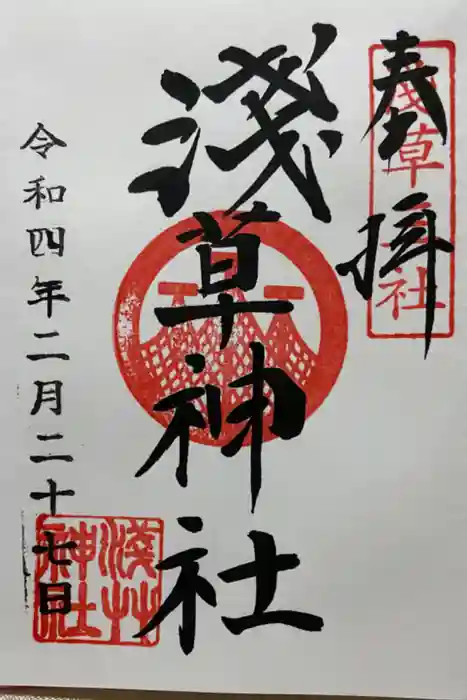 奉拝
淺草神社
淺草神社
令和四年二月二十七日
淺草神社